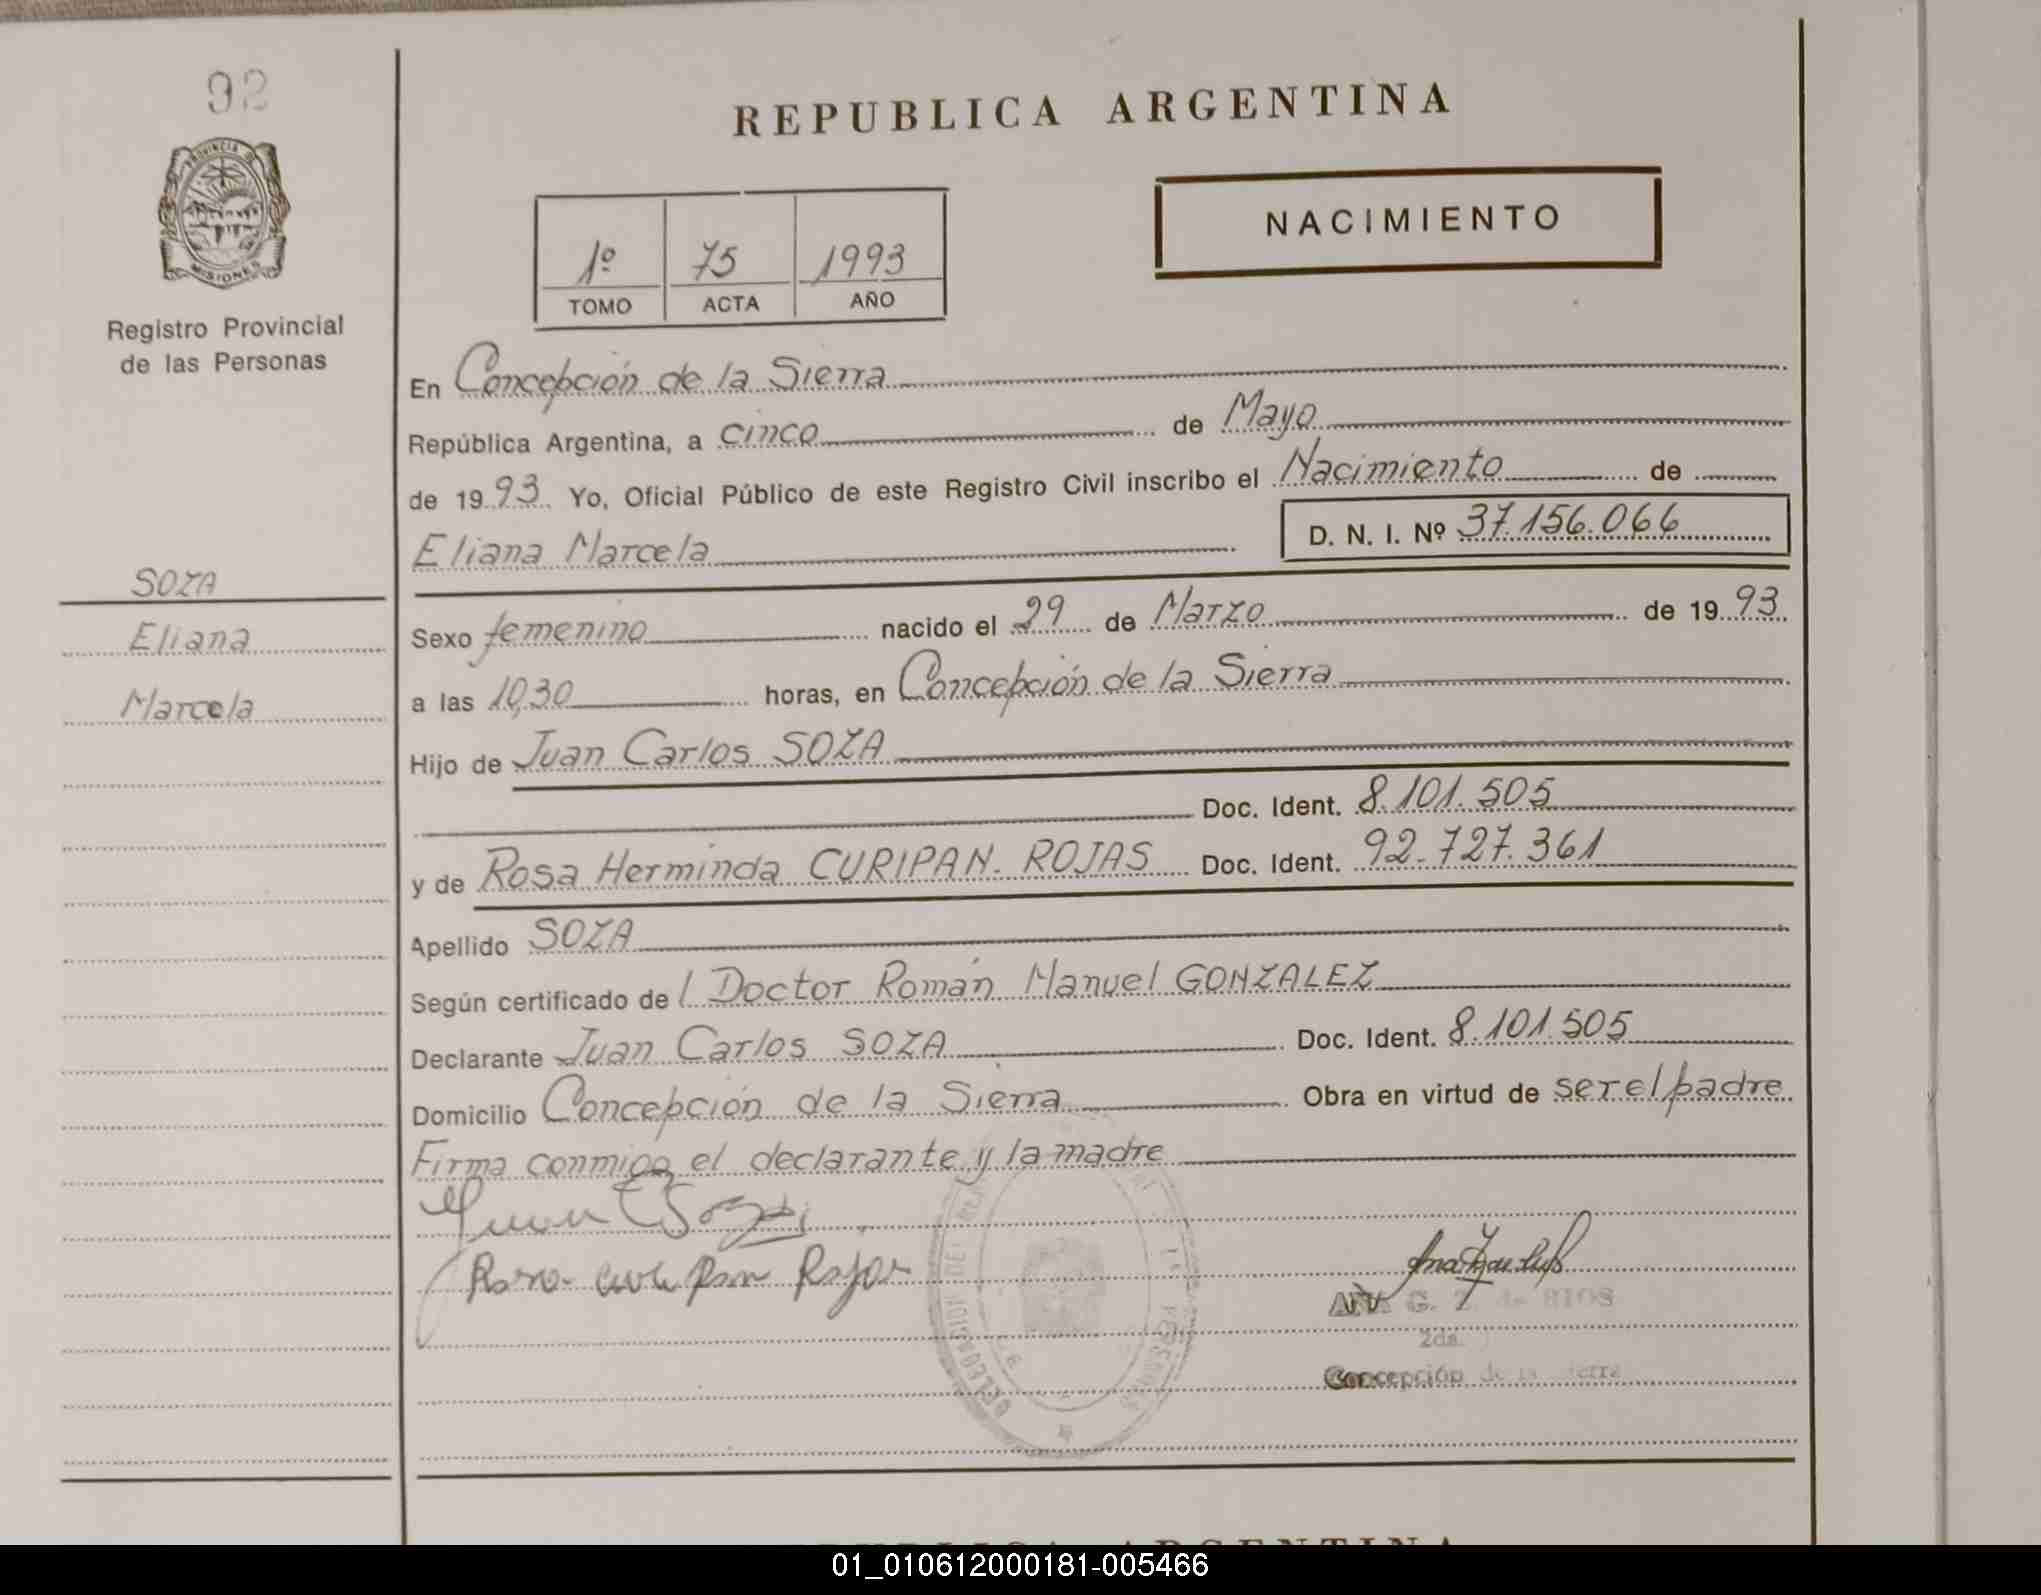 92
PROVINCIA DE
MISIONES
Registro Provincial
de las Personas
SOZA
Eliana
Marcela
REPUBLICA ARGENTINA
NACIMIENTO
1º 75 1993
TOMO ACTA AÑO
En Concepción de la Sierra
República Argentina, a cinco de Mayo
de 1993. Yo, Oficial Público de este Registro Civil inscribo el Nacimiento de
Eliana Marcela D. N. I. Nº 37.156.066
Sexo femenino nacido el 29 de Marzo de 1993
a las 10,30 horas, en Concepción de la Sierra
Hijo de Juan Carlos SOZA
Doc. Ident. 8.101.505
y de Rosa Herminda CURIPAN. ROJAS Doc. Ident. 92.727.361
Apellido SOZA
Según certificado de l Doctor Román Manuel GONZALEZ
Declarante Juan Carlos SOZA Doc. Ident. 8.101.505
Domicilio Concepción de la Sierra Obra en virtud de ser el padre
Firma conmigo el declarante y la madre
Juan C Soza
Rosa curipan Rojas
ANA G. Z. de RIOS
2da.
Concepción de la Sierra
REPUBLICA ARGENTINA
01_010612000181-005466